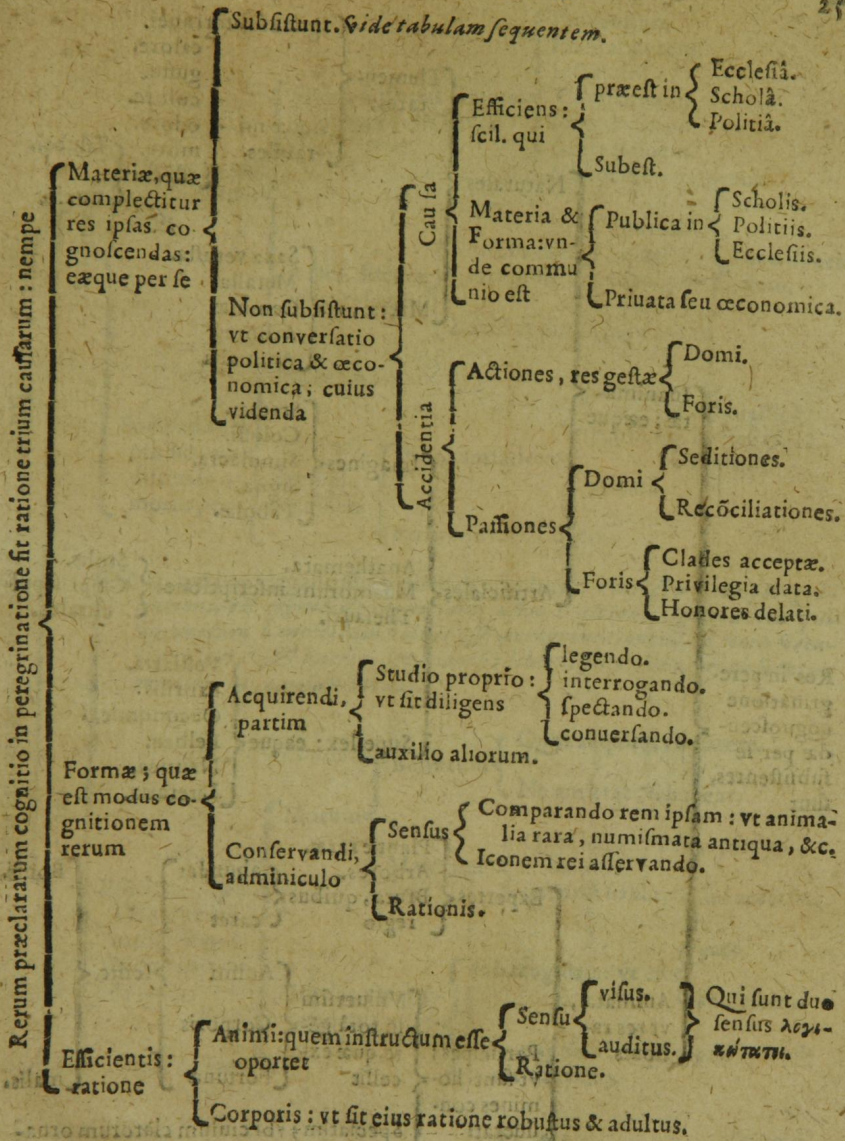 25
Rerum præclararum cognitio in peregrinatione fit ratione trium cauſſarum : nempe
Materiæ, quæ
complectitur
res ipſas co
gnoſcendas:
eæque per ſe
Subſiſtunt. Vide tabulam ſequentem.
Non ſubſiſtunt:
vt converſatio
politica & œco-
nomica; cuius
videnda
Cau ſa
Efficiens:
ſcil. qui
præeſt in
Eccleſiâ.
Scholâ.
Politiâ.
Subeſt.
Materia &
Forma: vn-
de commu
nio eſt
Publica in
Scholis.
Politiis.
Eccleſiis.
Priuata ſeu œconomica.
Accidentia
Actiones, res geſtæ
Domi.
Foris.
Paſſiones
Domi
Seditiones.
Recõciliationes.
Foris
Clades acceptæ.
Privilegia data.
Honores delati.
Formæ; quæ
eſt modus co-
gnitionem
rerum
Acquirendi,
partim
Studio proprio:
vt ſit diligens
legendo.
interrogando.
ſpectando.
conuerſando.
auxilio aliorum.
Conſervandi,
adminiculo
Senſus
Comparando rem ipſam : vt anima-
lia rara, numiſmata antiqua, &c.
Iconem rei aſſervando.
Rationis.
Efficientis:
ratione
Animi: quem inſtructum eſſe
oportet
Senſu
viſus.
auditus.
Qui ſunt duo
ſenſus λογι-
κώτατοι.
Ratione.
Corporis : vt ſit eius ratione robuſtus & adultus.